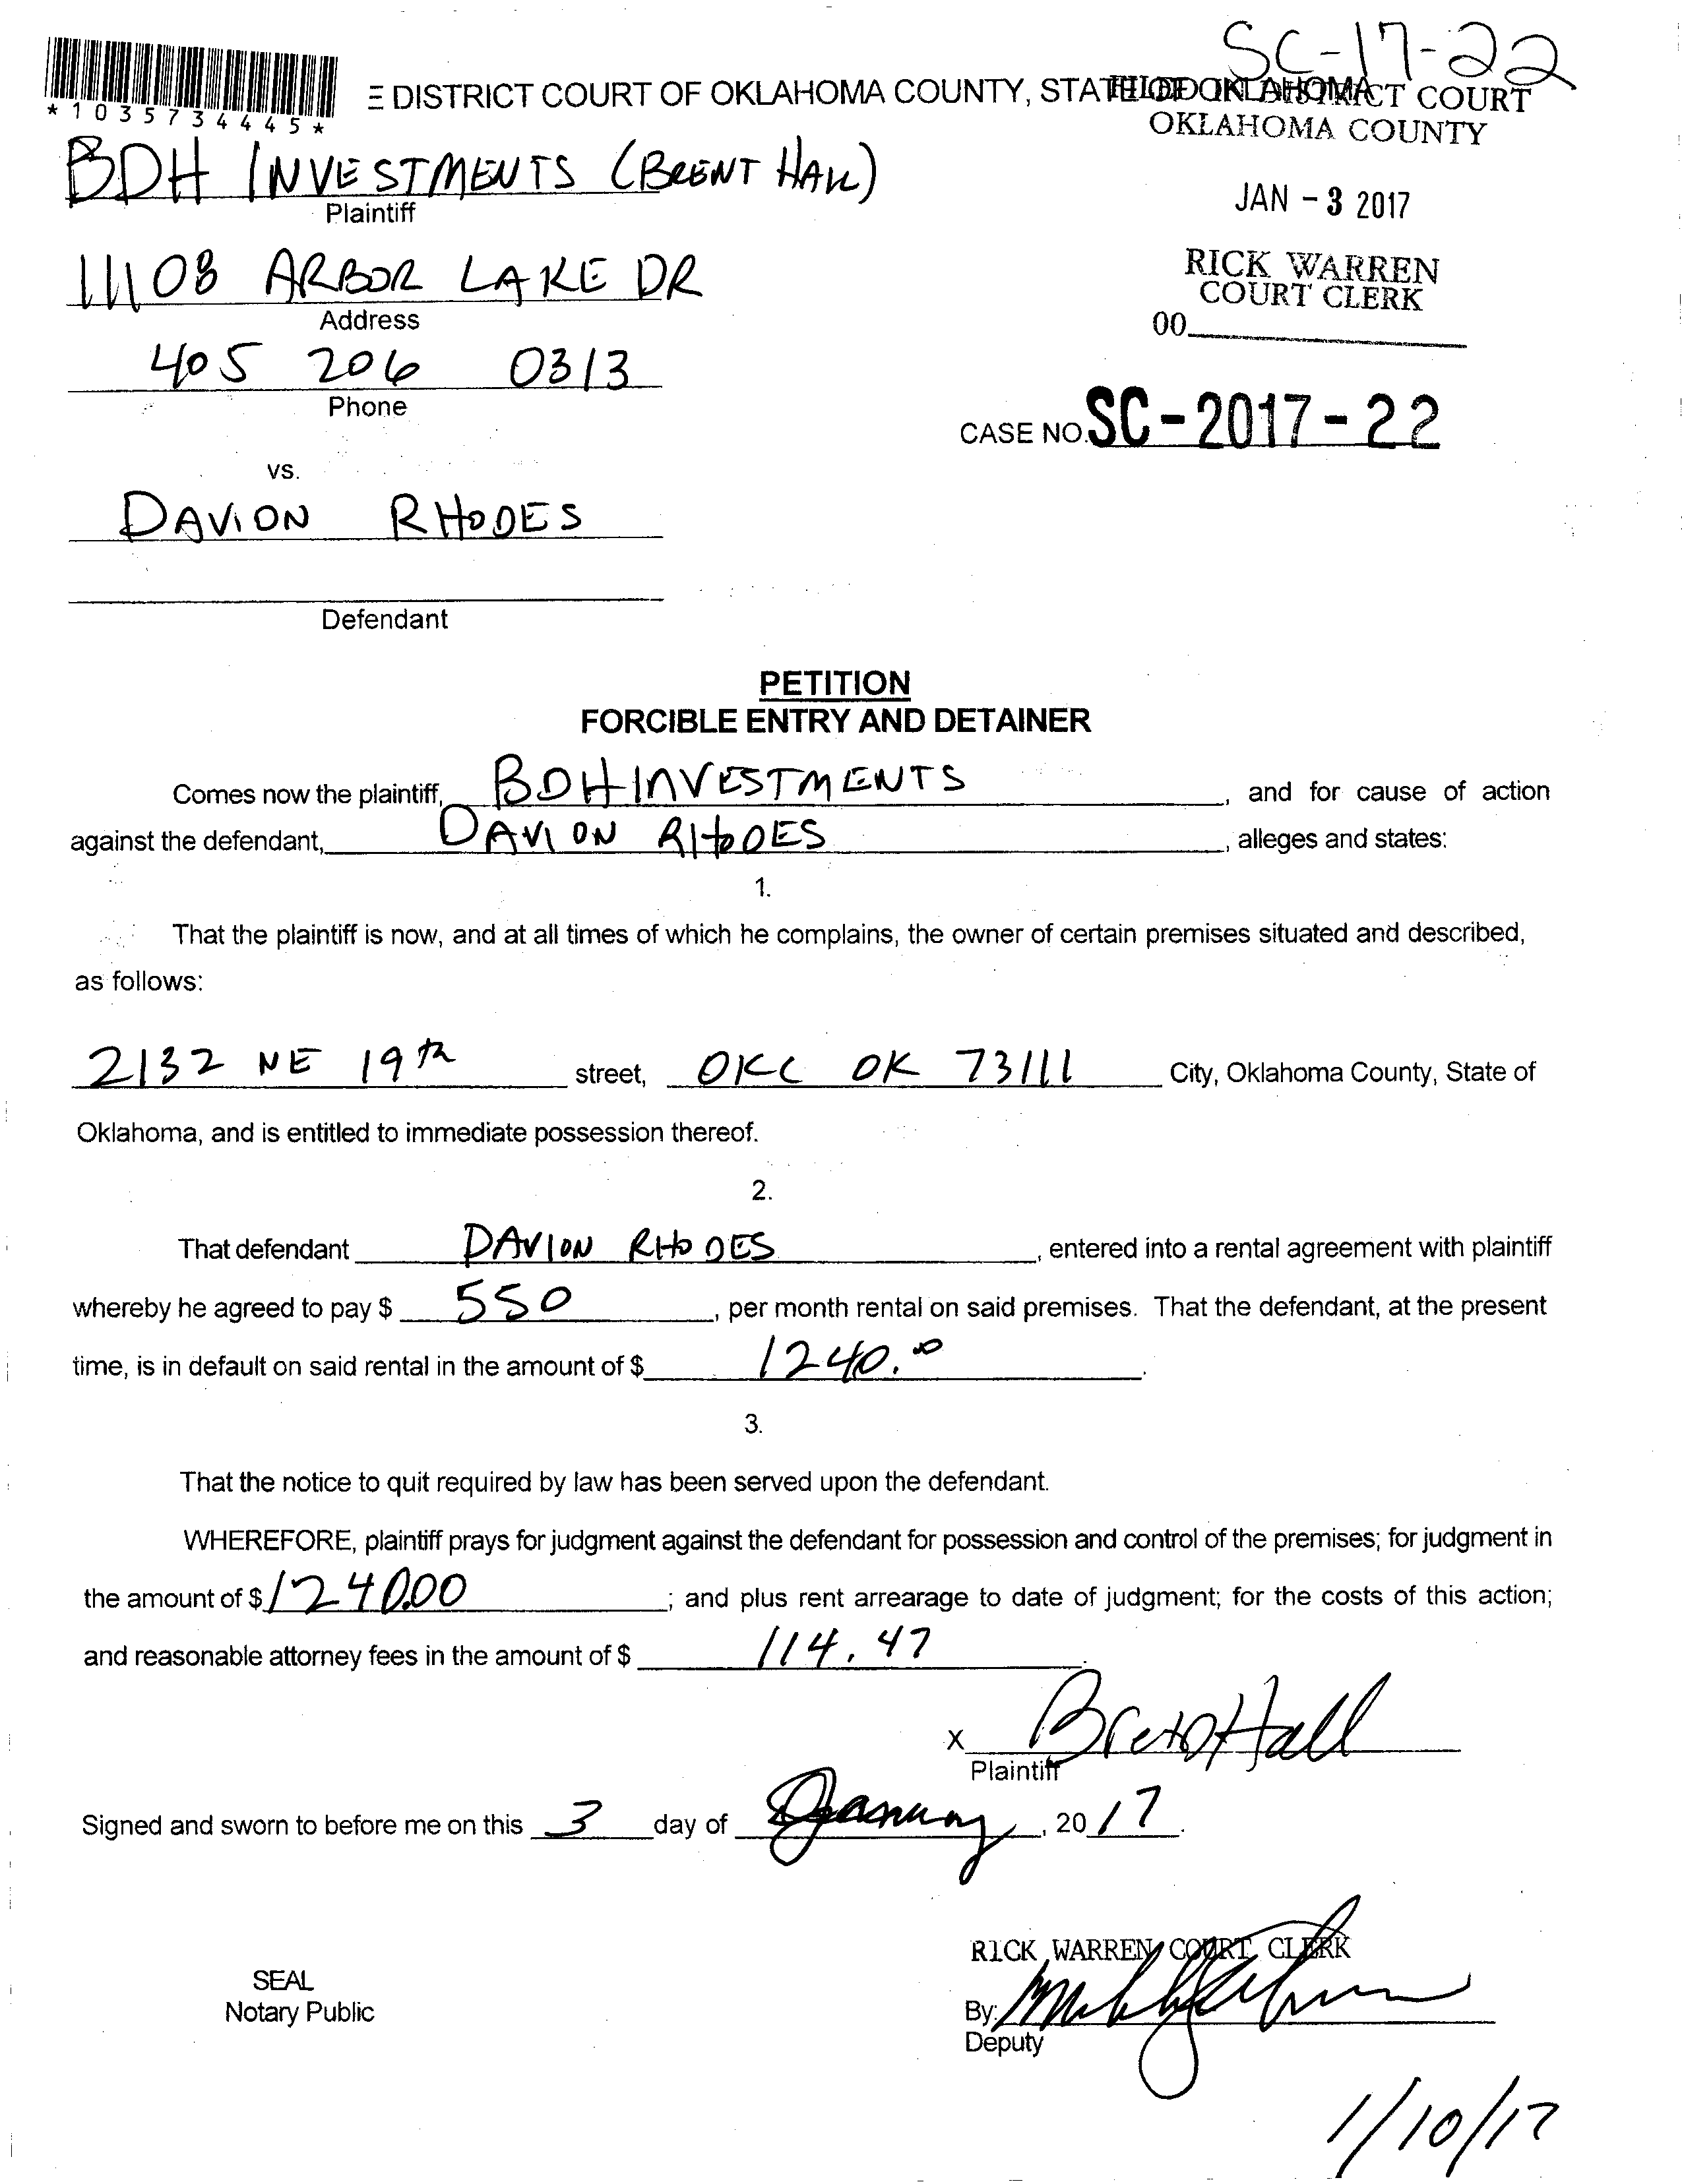 SC-17-22
*1035734445*
E DISTRICT COURT OF OKLAHOMA COUNTY, STATE OF OKLAHOMA
FILED IN DISTRICT COURT
OKLAHOMA COUNTY
BDH INVESTMENTS (BRENT HALL)
Plaintiff
JAN - 3 2017
11108 ARBOR LAKE DR
Address
RICK WARREN
COURT CLERK
00
405 206 0313
Phone
CASE NO. SC-2017-22
vs.
DAVION RHODES
Defendant
PETITION
FORCIBLE ENTRY AND DETAINER
Comes now the plaintiff, BDH INVESTMENTS, and for cause of action
against the defendant, DAVION RHODES, alleges and states:
1.
That the plaintiff is now, and at all times of which he complains, the owner of certain premises situated and described,
as follows:
2132 NE 19th street, OKC OK 73111 City, Oklahoma County, State of
Oklahoma, and is entitled to immediate possession thereof.
2.
That defendant DAVION RHODES, entered into a rental agreement with plaintiff
whereby he agreed to pay $ 550, per month rental on said premises. That the defendant, at the present
time, is in default on said rental in the amount of $ 1240.00.
3.
That the notice to quit required by law has been served upon the defendant.
WHEREFORE, plaintiff prays for judgment against the defendant for possession and control of the premises; for judgment in
the amount of $ 1240.00; and plus rent arrearage to date of judgment; for the costs of this action;
and reasonable attorney fees in the amount of $ 114.47.
X Brent Hall
Plaintiff
Signed and sworn to before me on this 3 day of January, 2017.
RICK WARREN COURT CLERK
SEAL
Notary Public
By:
Deputy
1/10/17